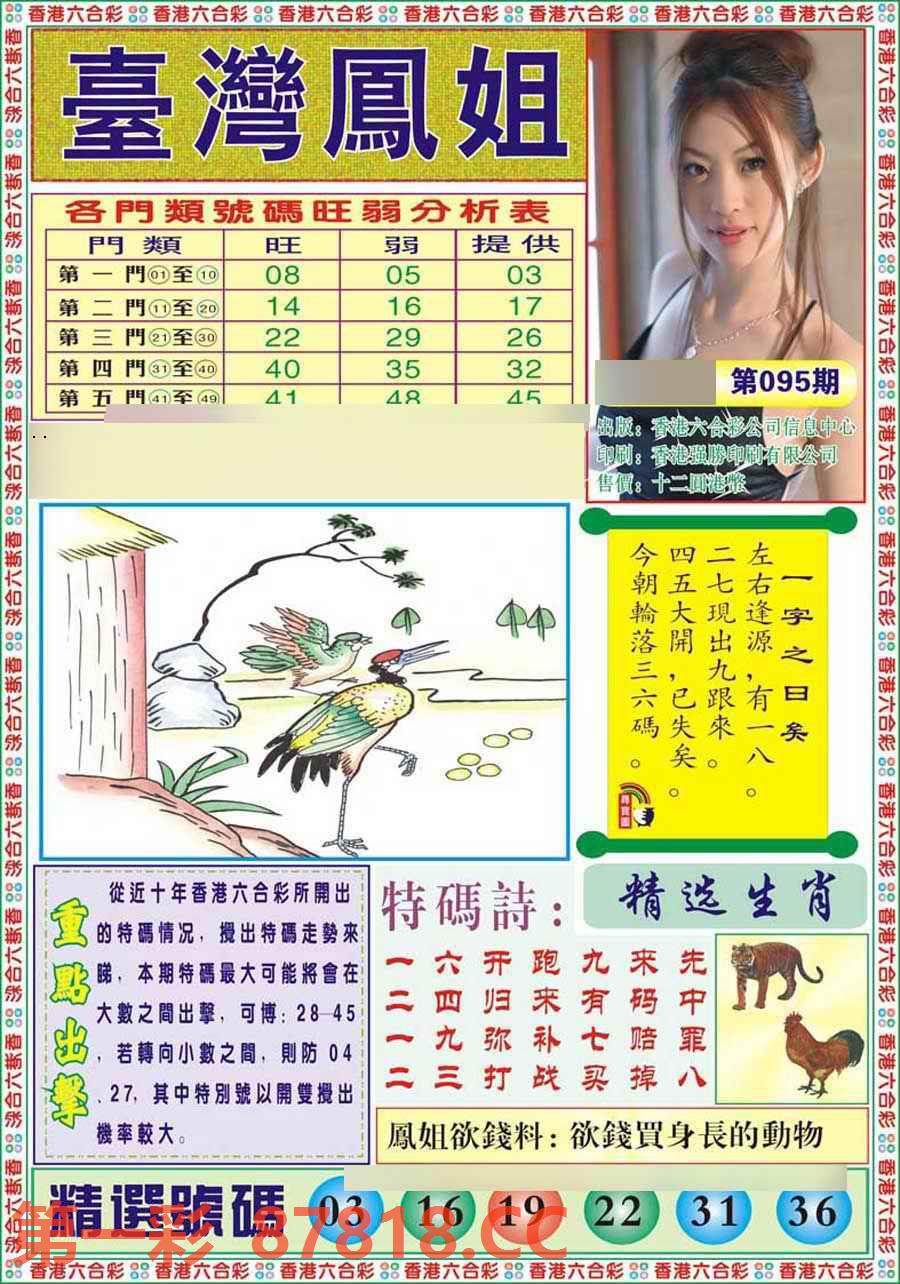 香港六合彩 香港六合彩 香港六合彩 香港六合彩 香港六合彩 香港六合彩
臺灣鳳姐
各門類號碼旺弱分析表
門類 旺 弱 提供
第一門01至10 08 05 03
第二門11至20 14 16 17
第三門21至30 22 29 26
第四門31至40 40 35 32
第五門41至49 41 48 45
第095期
出版：香港六合彩公司信息中心
印刷：香港强勝印刷有限公司
售價：十二圓港幣
一字之曰矣
左右逢源，有一八。
二七現出九跟來。
四五大開，已失矣。
今朝輪落三六碼。
尋寶圖
重點出擊
從近十年香港六合彩所開出
的特碼情况，攪出特碼走勢來
睇，本期特碼最大可能將會在
大數之間出擊，可博：28—45
，若轉向小數之間，則防 04
、27，其中特別號以開雙攪出
機率較大。
特碼詩：
一六开跑九来先
二四归来有码中
一九弥补七赔罪
二三打战买掉八
精选生肖
鳳姐欲錢料：欲錢買身長的動物
精選號碼 03 16 19 22 31 36
第一彩 87818.CC
香港六合彩 香港六合彩 香港六合彩 香港六合彩 香港六合彩 香港六合彩